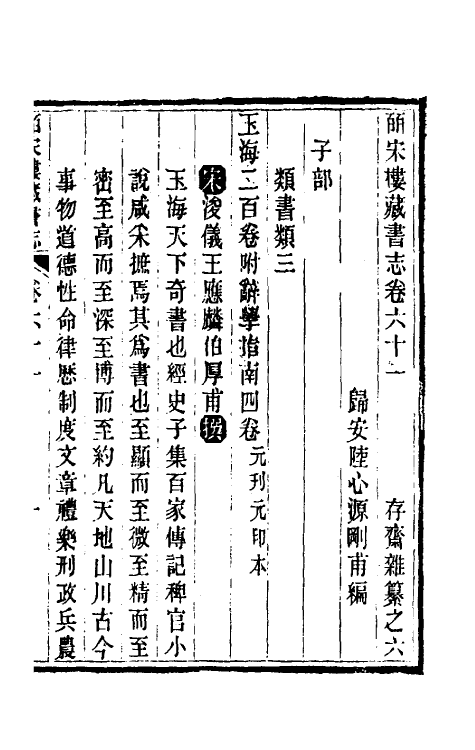 皕宋樓藏書志卷六十一　存齋雜纂之六
歸安陸心源剛甫編
子部
類書類三
玉海二百卷附辭學指南四卷 元刊元印本
宋浚儀王應麟伯厚甫撰
玉海天下奇書也經史子集百家傳記稗官小
說咸采摭焉其爲書也至顯而至微至精而至
密至高而至深至博而至約凡天地山川古今
事物道德性命律歷制度文章禮樂刑政兵農
皕宋樓藏書志 卷六十一 一